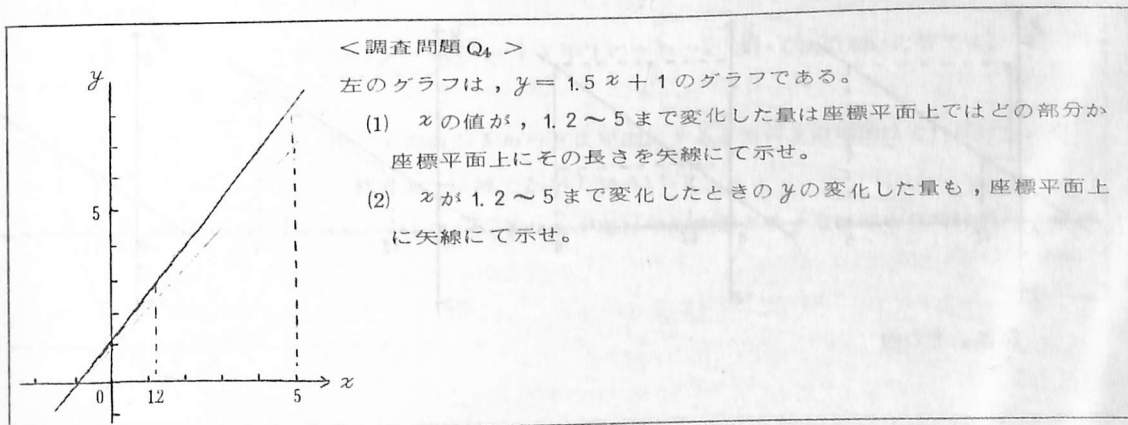 <調査問題Q4>
左のグラフは，y＝1.5x＋1のグラフである。
(1) xの値が，1.2～5まで変化した量は座標平面上ではどの部分か
座標平面上にその長さを矢線にて示せ。
(2) xが1.2～5まで変化したときのyの変化した量も，座標平面上
に矢線にて示せ。
y
5
0 1.2 5 x